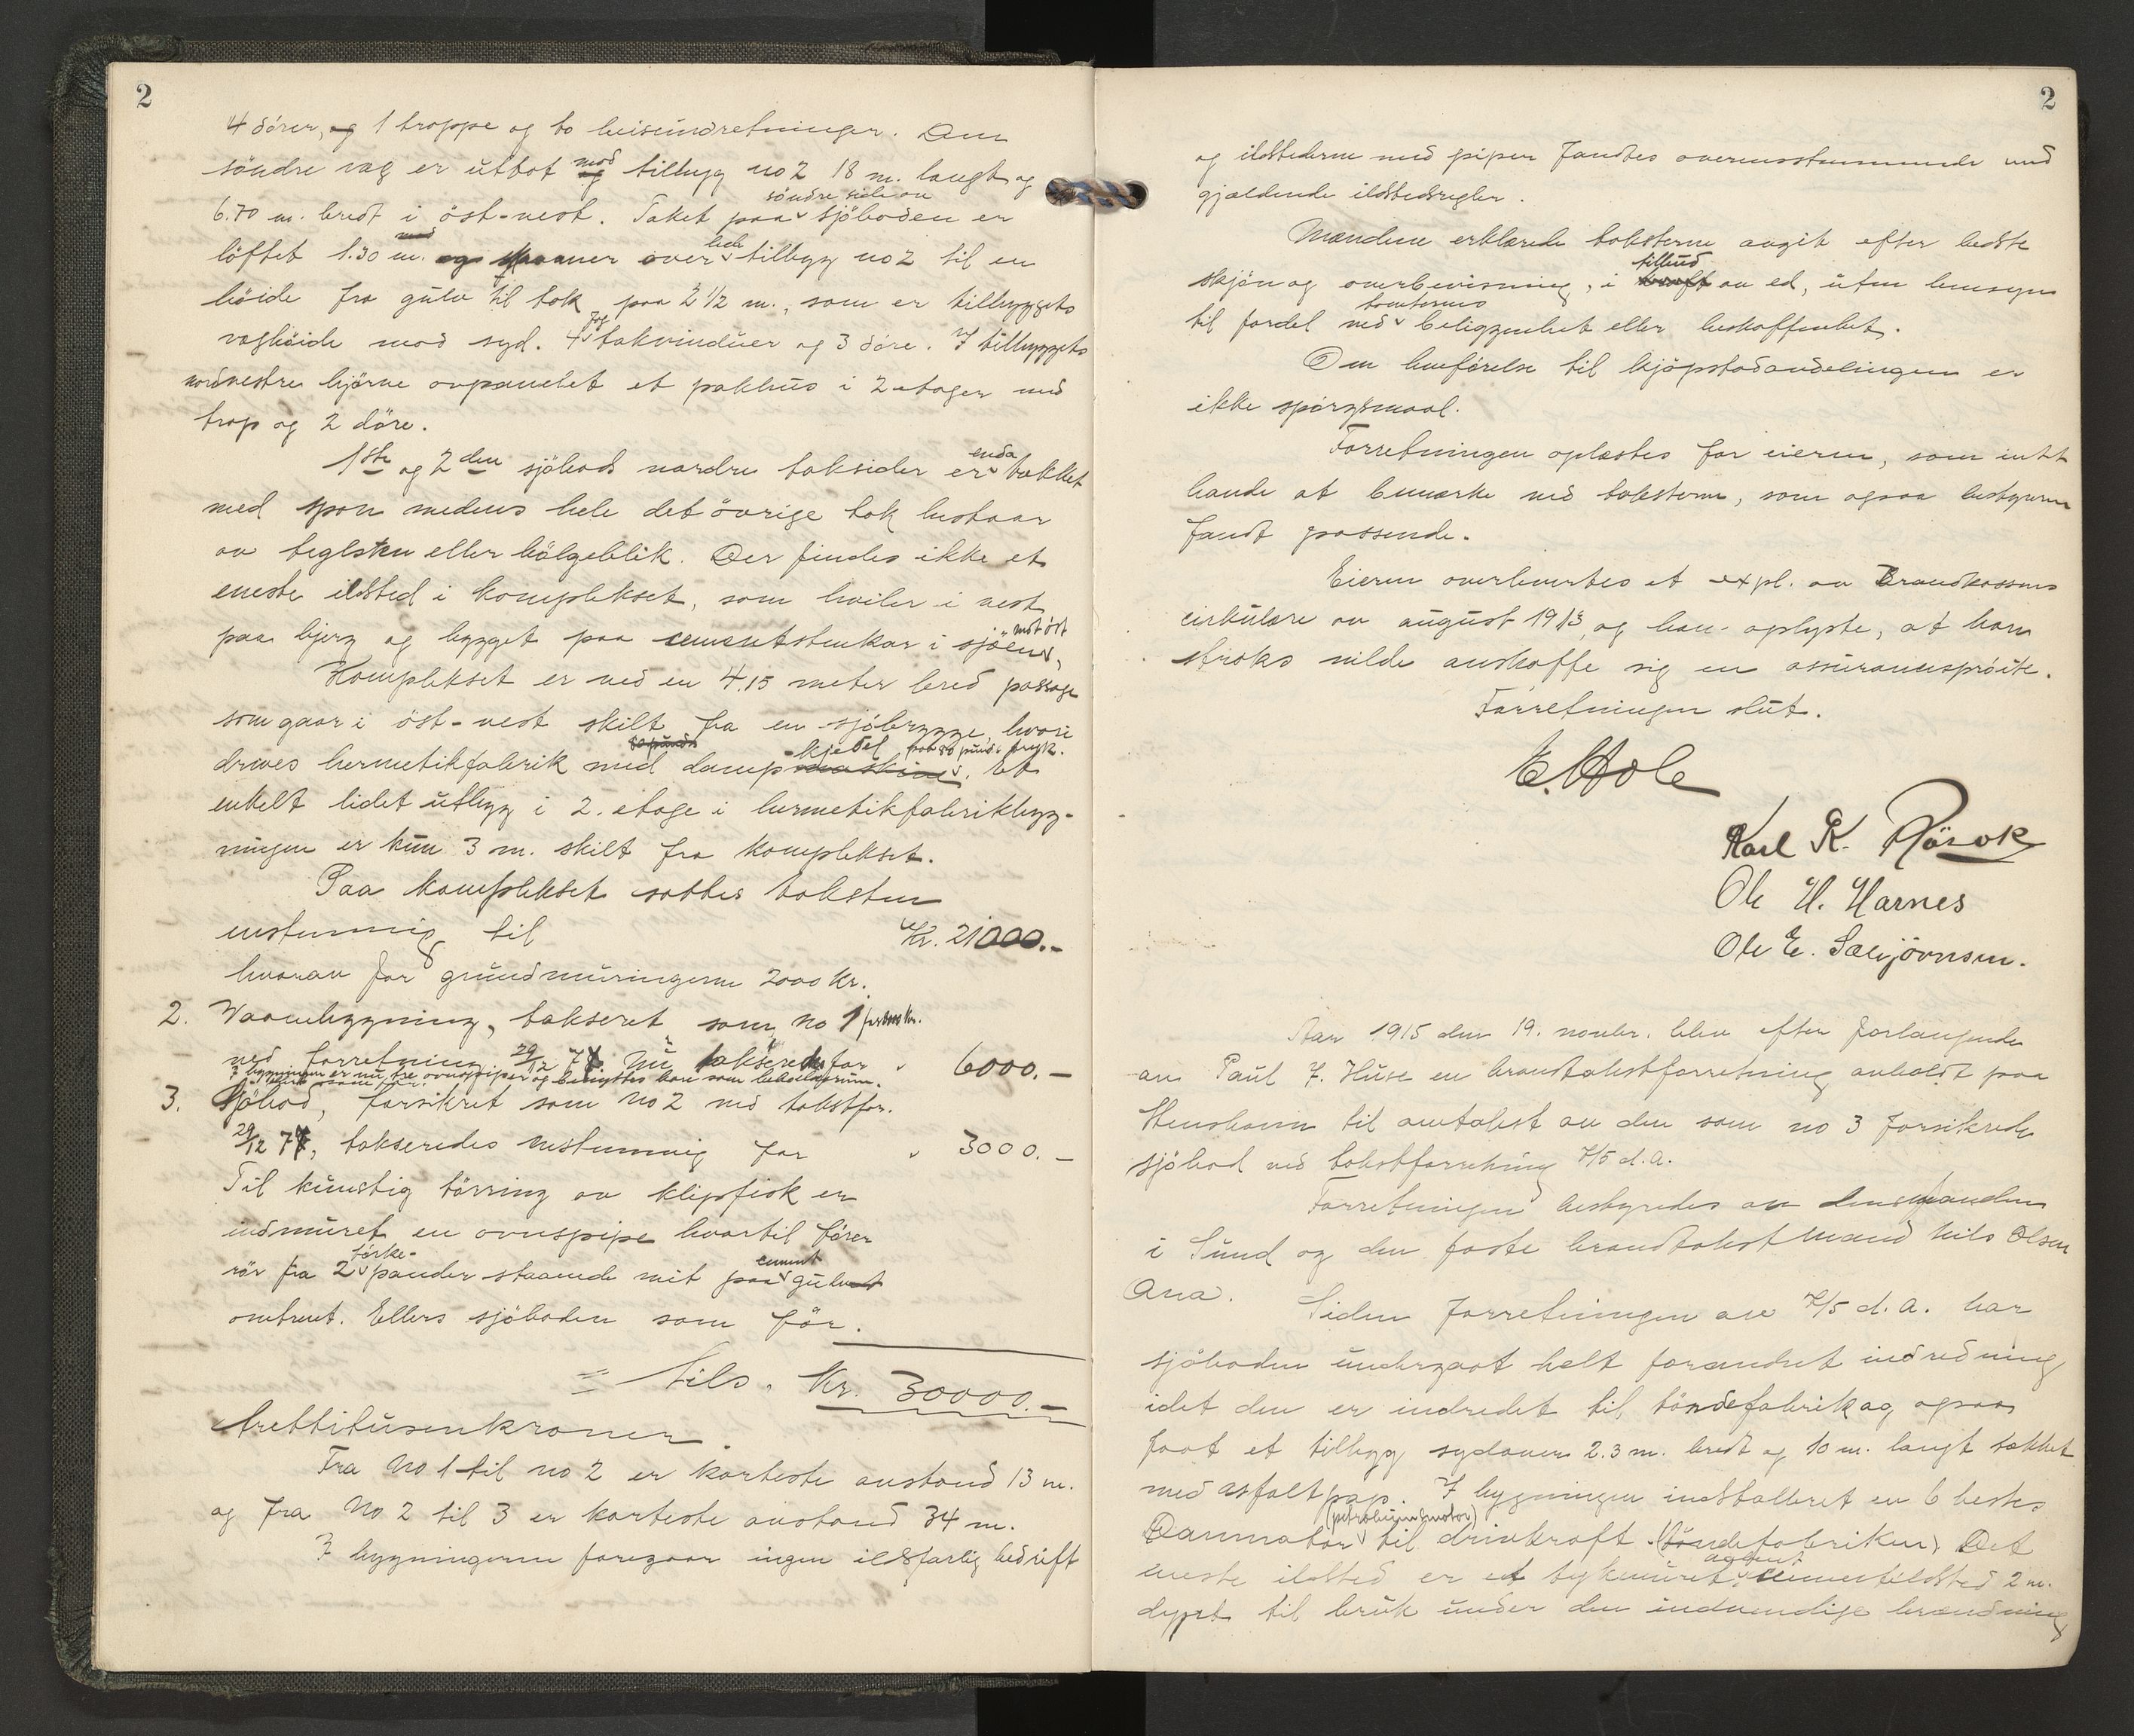 2
4 dörer, og 1 trappe og to heiseindretninger. Den
söndre væg er utbot mod tilbygg no 2 18 m. langt og
6.70 m. bredt i öst-vest. Taket paa söndre side av sjöboden er
löftet 1.30 m. og spænner over hele tilbygg no 2 til en
höide fra gulv til tak paa 2 1/2 m., som er tilbyggets
væghöide mod syd. 4 fag takvinduer og 3 döre. I tilbyggets
nordvestre hjörne avpanelet et pakhus i 2 etager med
trap og 2 döre.
1ste og 2den sjöbods nordre taksider er enda tækket
med spon medens hele det övrige tak bestaar
av teglsten eller bölgeblik. Der findes ikke et
eneste ildsted i komplekset, som hviler i vest
paa bjerg og bygget paa cementstenkar i sjöen mot öst,
Komplekset er ved en 4.15 meter bred passage
som gaar i öst-vest skilt fra en sjöbrygge, hvori
drives hermetikfabrik med dampmaskine -kjedel paa 80 punds tryk. Et
enkelt lidet utbygg i 2. etage i hermetikfabrikbyg-
ningen er kun 3 m. skilt fra komplekset.
Paa komplekset sattes taksten
enstemmig til Kr. 21000.-
hvorav for grundmuringerne 2000 kr.
2. Vaanebygning, takseret som no 1
ved forretning 29/12 74 nu takseredes for " 6000.-
I bygningen er nu tre ovnspiper og benyttes kun som beboelsesrum.
3. Sjöbod, forsikret som no 2 ved takstfor.
29/12 74, takseredes enstemmig for " 3000.-
Til kunstig törring av klipfisk er
indmuret en ovnspipe hvortil förer
rör fra 2 törke- pander staaende mit paa cement gulvet
omtrent. Ellers sjöboden som för.
= Tils. Kr. 30000.-
trettitusenkroner.
Fra no 1 til no 2 er korteste avstand 13 m.
og fra no 2 til 3 er korteste avstand 34 m.
I bygningerne foregaar ingen ildsfarlig bedrift
2
og ildstederne med piper fandtes overensstemmende med
gjældende ildstedsregler.
Mændene erklærede taksterne avgit efter bedste
skjön og overbevisning, i kraft tilbud av ed, uten hensyn
til fordel ved tomternes beliggenhet eller beskaffenhet.
Om henförelse til kjöpstadavdelingen er
ikke spörgsmaal.
Forretningen oplæstes for eieren, som intet
havde at bemærke ved taksterne, som ogsaa bestyreren
fandt passende.
Eieren overlevertes et expl. av Brandkassens
cirkulære av august 1913, og han oplyste, at han
straks vilde anskaffe sig en assurancespröite.
Forretningen slut.
E. Hole
Karl K. Rösok
Ole H. Harnes
Ole E. Sæbjörnsen.
Aar 1915 den 19. novbr. blev efter forlangende
av Paul I. Huse en brandtakstforretning avholdt paa
Stenshavn til omtakst av den som no 3 forsikrede
sjöbod ved takstforretning 7/5 d.a.
Forretningen bestyredes av lensmanden
i Sund og den faste brandtakstmand Nils Olsen
Ona.
Siden forretningen av 7/5 d.a. har
sjöboden undergaat helt forandret indredning
idet den er indredet til töndefabrik og ogsaa
faat et tilbygg sydover 2.3 m. bredt og 10 m. langt tækket
med asfaltpap. I bygningen installeret en 6 hestes
Danmotor (petroleumsmotor) til drivkraft (töndefabriken). Det
eneste ildsted er et tykmuret ildsted 2 m.
dypt til bruk under den indvendige brænding